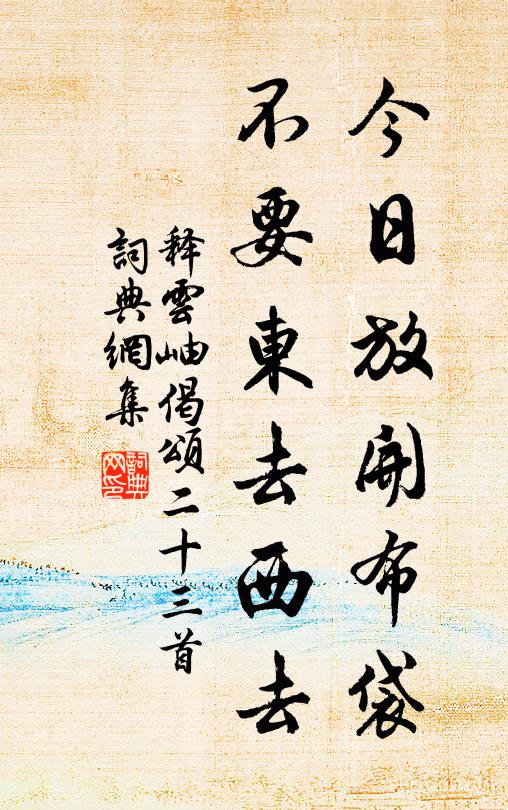 今日放開布袋
不要東去西去
释雲岫偈頌二十三首
詞典網集
詞典网印